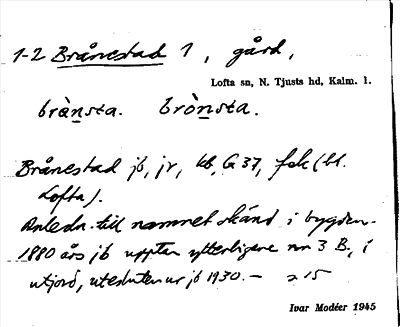 1-2 Brånestad 1, gård,
Lofta sn, N. Tjusts hd, Kalm. l.
brànsta. brònsta.
Brånestad jb, jr, kb, G 37, fsk (bl.
Lofta).
Anledn. till namnet okänd i bygden.
1880 års jb upptar ytterligare nr 3 B, i
utjord, utesluten ur jb 1930. —
Ivar Modéer 1945